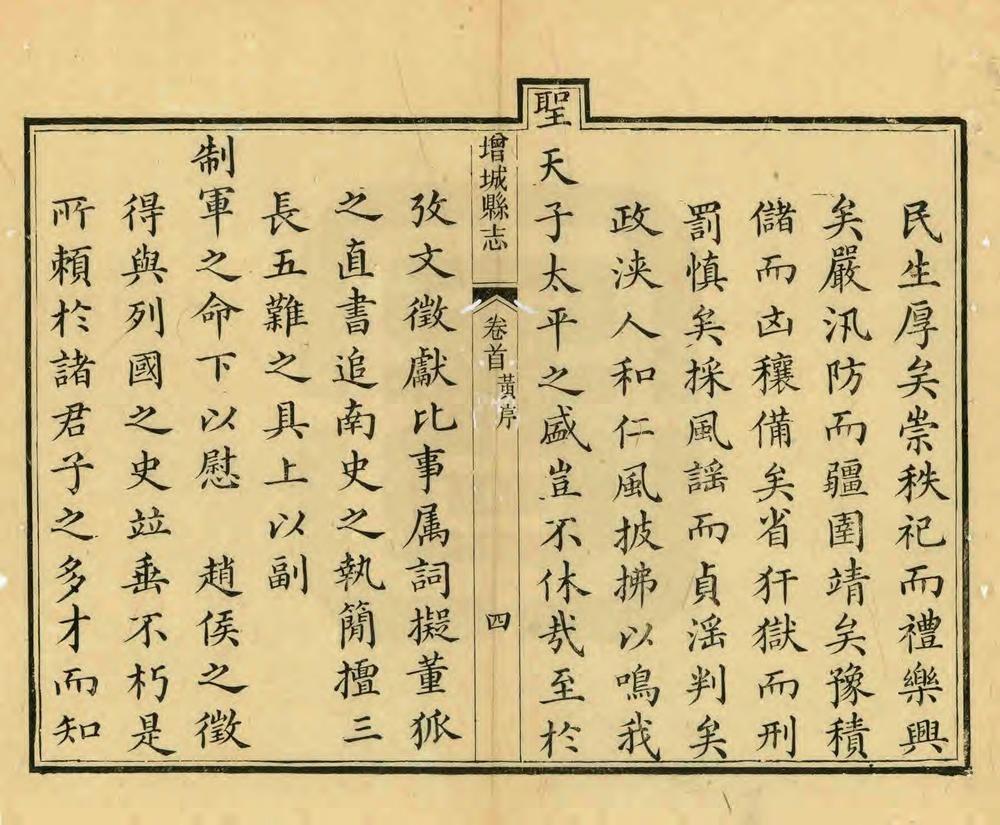 民生厚矣崇秩祀而禮樂興
矣嚴汛防而疆圉靖矣豫積
儲而凶穰備矣省犴獄而刑
罰慎矣採風謠而貞滛判矣
政浹人和仁風披拂以鳴我
聖天子太平之盛豈不休哉至於
增城縣志 卷首 黃序 四
攷文徵獻比事属詞擬董狐
之直書追南史之執簡擅三
長五難之具上以副
制軍之命下以慰 趙侯之徵
得與列國之史竝垂不朽是
所頼於諸君子之多才而知